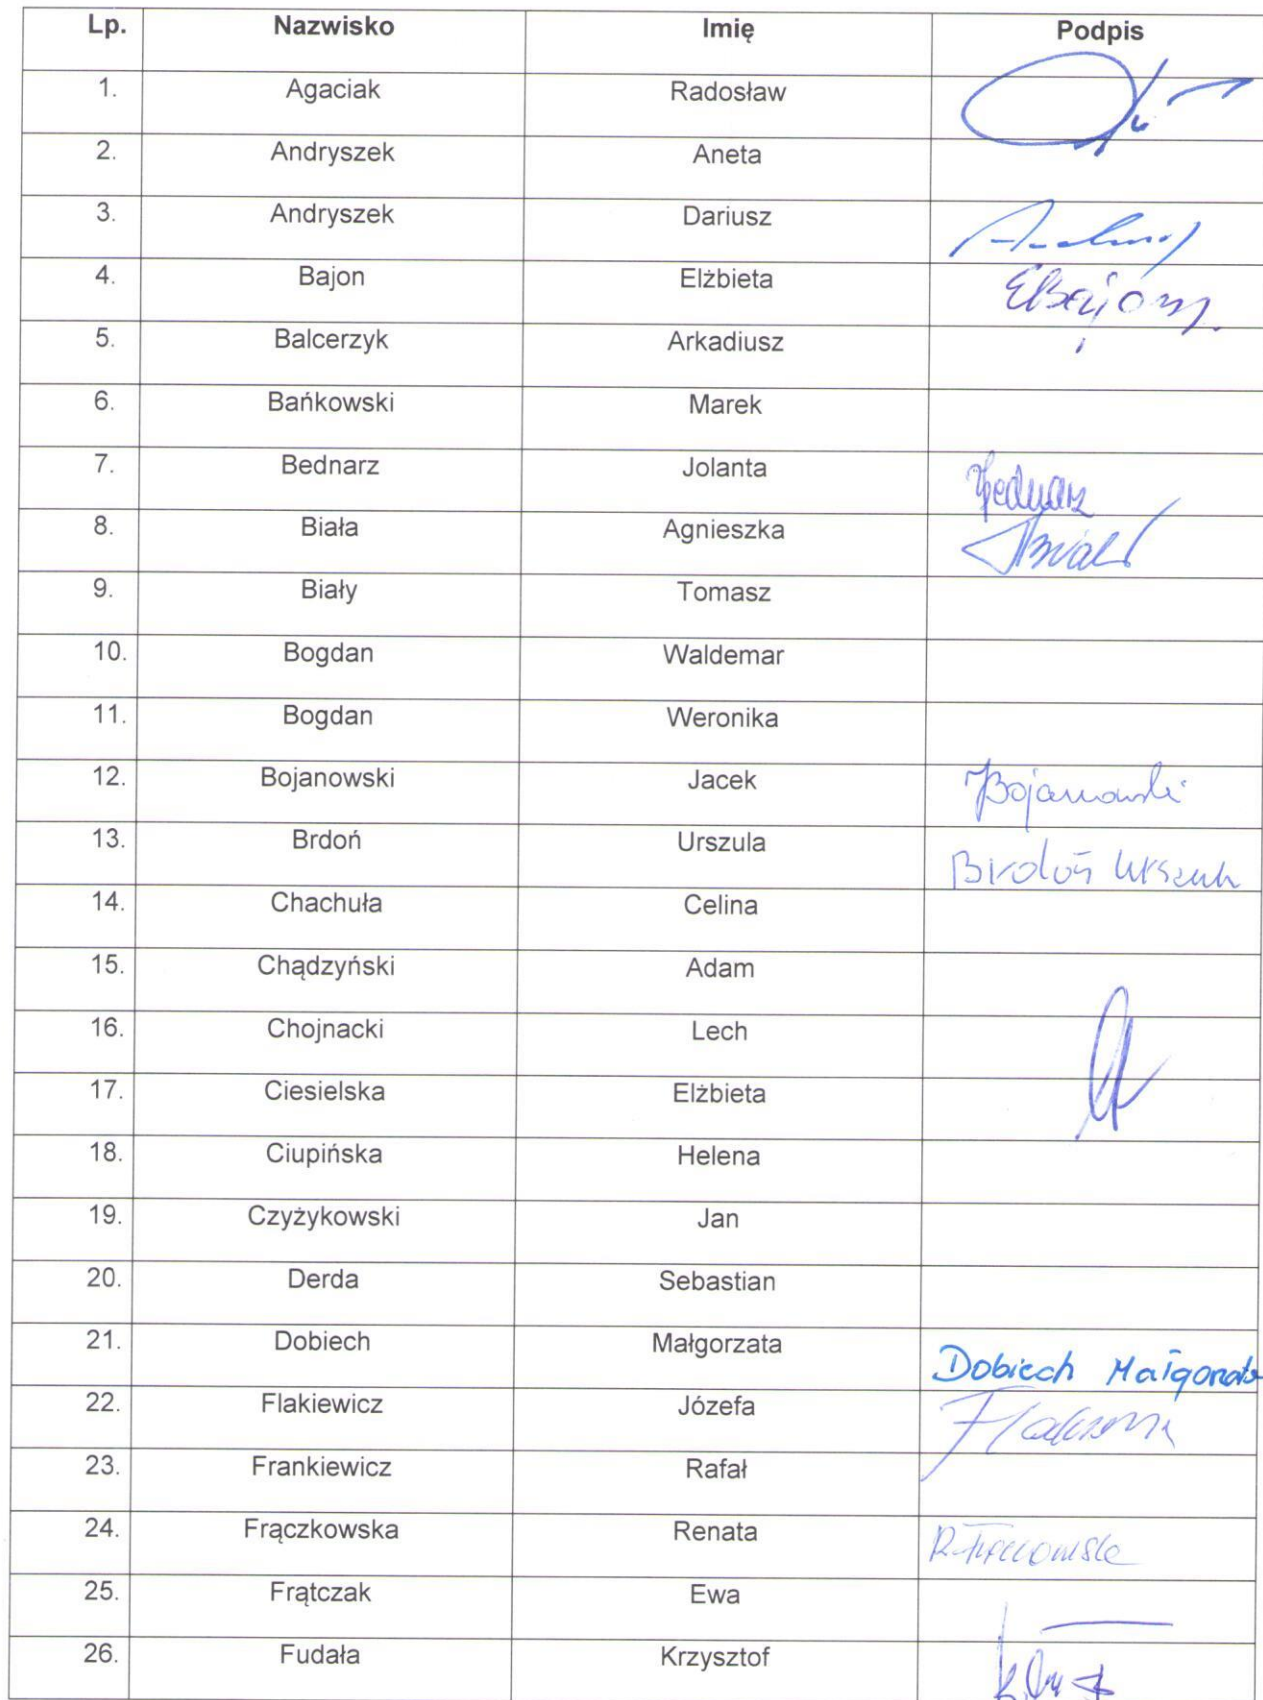 Lp. Nazwisko Imię Podpis
1. Agaciak Radosław
2. Andryszek Aneta
3. Andryszek Dariusz
4. Bajon Elżbieta EBajon
5. Balcerzyk Arkadiusz
6. Bańkowski Marek
7. Bednarz Jolanta
8. Biała Agnieszka
9. Biały Tomasz
10. Bogdan Waldemar
11. Bogdan Weronika
12. Bojanowski Jacek JBojanowski
13. Brdoń Urszula Brdoń Urszula
14. Chachuła Celina
15. Chądzyński Adam
16. Chojnacki Lech
17. Ciesielska Elżbieta
18. Ciupińska Helena
19. Czyżykowski Jan
20. Derda Sebastian
21. Dobiech Małgorzata Dobiech Małgorzata
22. Flakiewicz Józefa
23. Frankiewicz Rafał
24. Frączkowska Renata
25. Frątczak Ewa
26. Fudała Krzysztof